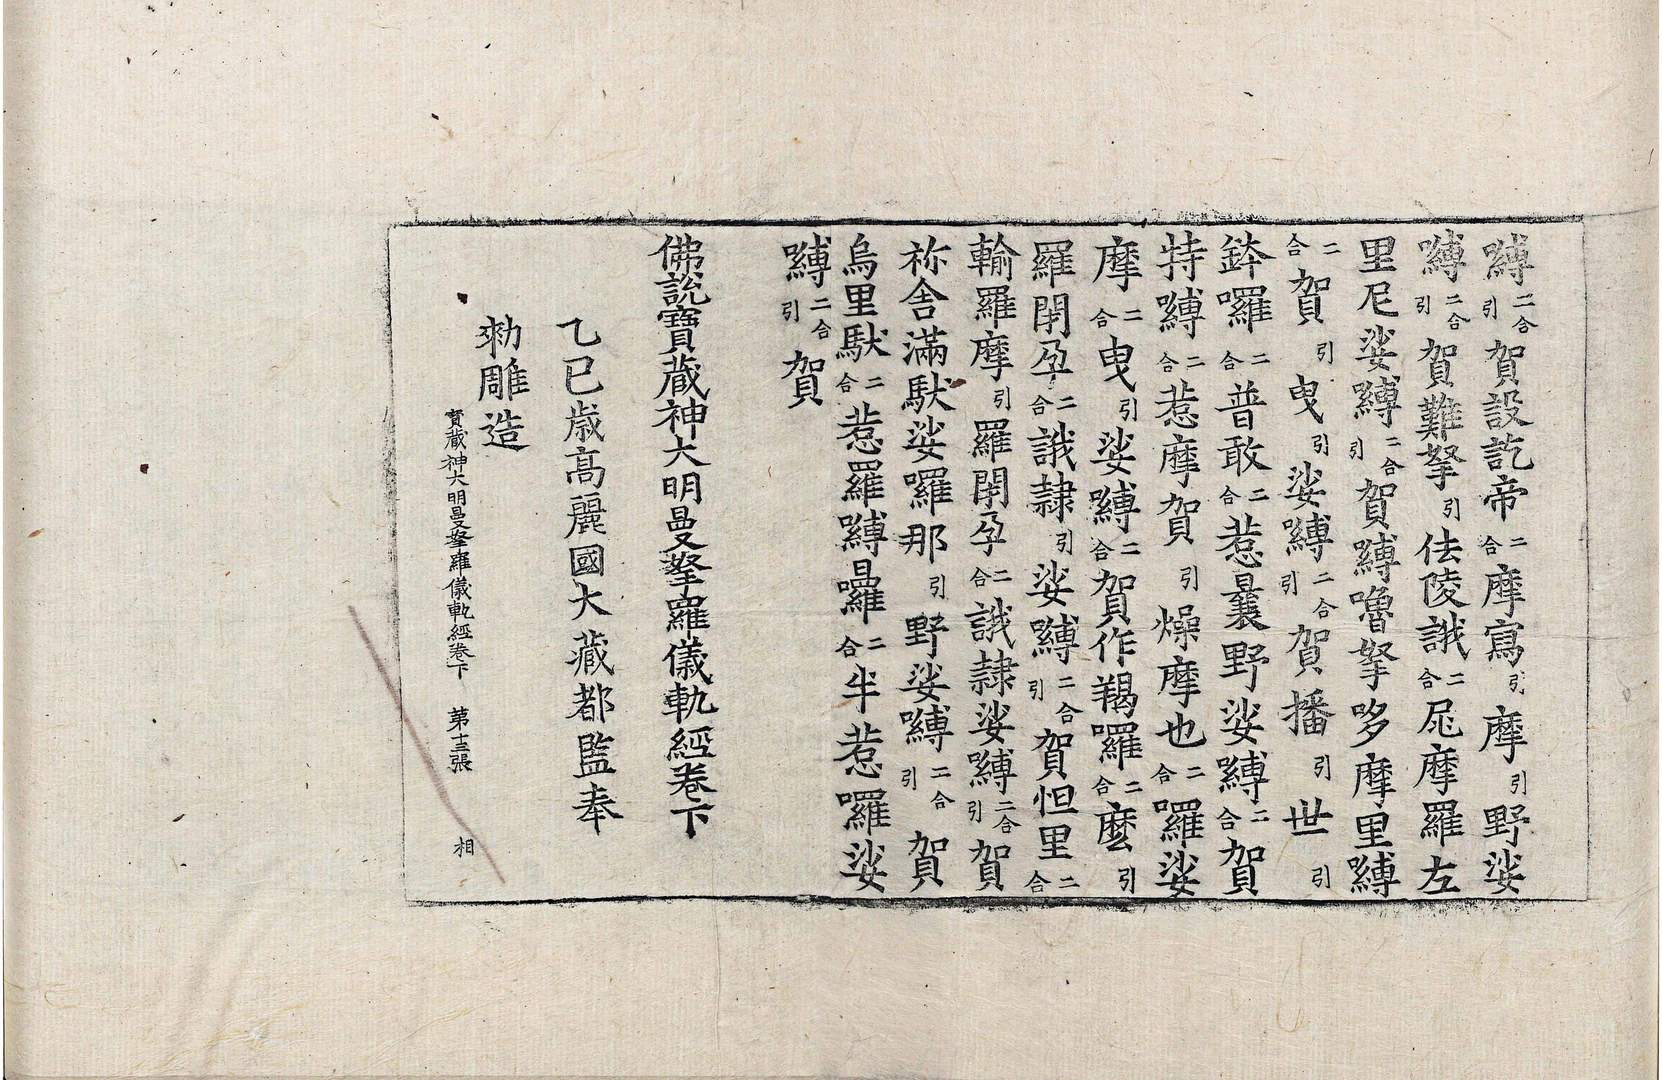 嚩二合引賀設訖帝二合摩寫引摩引野娑
嚩二合引賀難拏引佉陵誐二合尾摩羅左
里尼娑嚩二合引賀嚩嚕拏哆摩里嚩
二合賀引曳引娑嚩二合引賀播引世引
鉢囉二合普敢二合惹曩野娑嚩二合賀
特嚩二合惹摩賀引燥摩也二合囉娑
摩二合曳引娑嚩二合賀作羯囉二合麽引
羅閉孕二合誐隷引娑嚩二合引賀怛里二合
輸羅摩引羅閉孕二合誐隷娑嚩二合引賀
祢舍滿馱娑囉那引野娑嚩二合引賀
烏里馱二合惹羅嚩囉二合半惹囉娑
嚩二合引賀
佛說寶藏神大明曼拏羅儀軌經卷下
乙巳歲高麗國大藏都監奉
勑雕造
寶藏神大明曼拏羅儀軌經卷下 第十三張 相